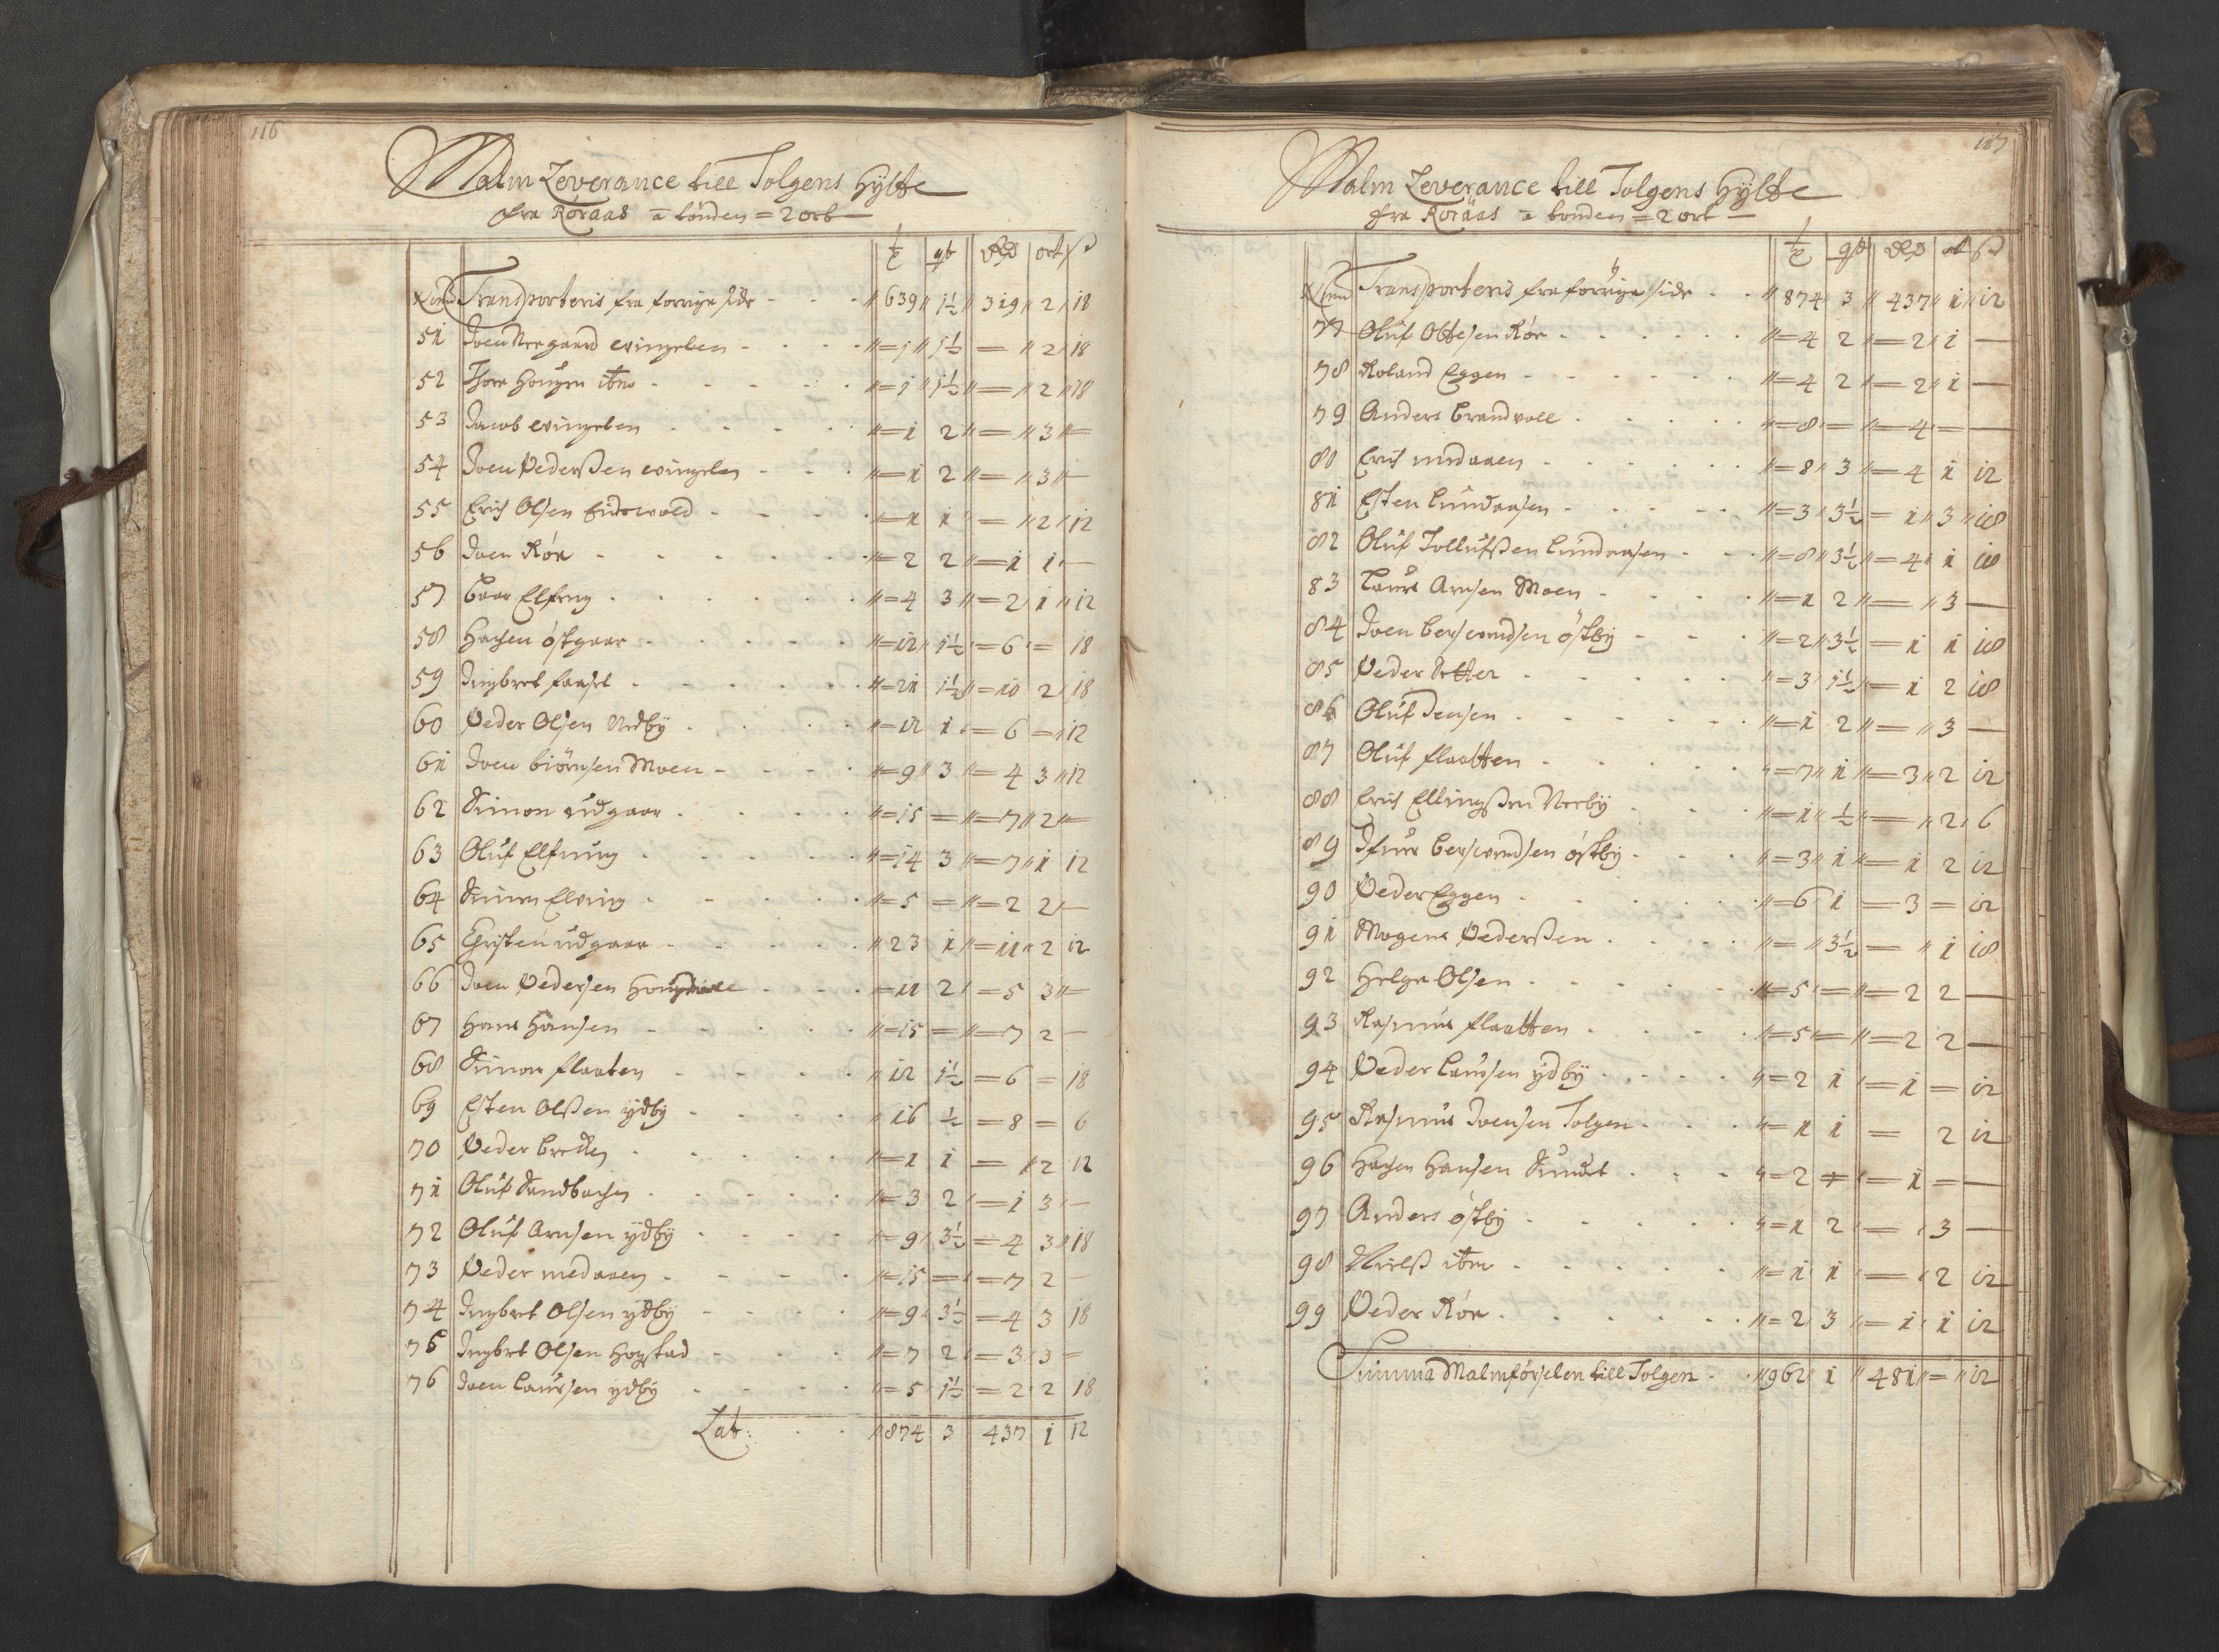 116
Malm Leverance till Tolgens Hÿtte
fra Röraas a tönden = 2 ort
tr qt Rdr ort ß
Transporteris fra forrige side 639 1½ 319 2 18
51 Joen Nergaard vingelen 1 1½ 2 18
52 Thore Hougen itm 1 1½ 2 18
53 Jacob vingelen 1 2 3
54 Joen Pederßen vingelen 1 2 3
55 Erich Olsen Eidsvold 1 1 2 12
56 Joen Röe 2 2 1 1
57 Baar Elfeng 4 3 2 1 12
58 Hagen östgaar 12 1½ 6 18
59 Ingbret faaset 21 1½ 10 2 18
60 Peder Olsen Nedbÿ 12 1 6 12
61 Joen biörnsen Moen 9 3 4 3 12
62 Simon udgaar 15 7 2
63 Oluf Elfeng 14 3 7 1 12
64 Simen Elving 5 2 2
65 Christen udgaar 23 1 11 2 12
66 Joen Pedersen 11 2 5 3
67 Hans Hansen 15 7 2
68 Simon flaaten 12 1½ 6 18
69 Esten Olßen ÿdbÿ 16 ½ 8 6
70 Peder bredten 1 1 2 12
71 Oluf Sandbachen 3 2 1 3
72 Oluf Arnsen ÿdbÿ 9 3½ 4 3 18
73 Peder medaaen 15 7 2
74 Ingbret Olsen ÿdbÿ 9 3½ 4 3 18
75 Ingbret Olsen Hogstad 7 2 3 3
76 Joen Laursen ÿdbÿ 5 1½ 2 2 18
Lat: 874 3 437 1 12
117
Malm Leverance till Tolgens Hÿtte
fra Röraas a tonden = 2 ort
tr qt Rdr ort ß
Transporteris fra forrige side 874 3 437 1 12
77 Oluf Ottesen Röe 4 2 2 1
78 Roland Eggen 4 2 2 1
79 Anders brandvoll 8 4
80 Erich midaaen 8 3 4 1 12
81 Esten Lundaasen 3 3½ 1 3 18
82 Oluf Tollufßen Lundaasen 8 3½ 4 1 18
83 Laurs Arnsen Moen 1 2 3
84 Joen bersvendsen östbÿ 2 3½ 1 1 18
85 Peder 3 1½ 1 2 18
86 Oluf Jensen 1 2 3
87 Oluf flaatten 7 1 3 2 12
88 Erich Ellingßen Nerbÿ 1 ½ 2 6
89 bersvendsen östbÿ 3 1 1 2 12
90 Peder Eggen 6 1 3 12
91 Mogens Pederßen 3½ 1 18
92 Helge Olsen 5 2 2
93 Rasmus flaatten 5 2 2
94 Peder Laursen ÿdbÿ 2 1 1 12
95 Rasmus Joensen Tolgen 1 1 2 12
96 Hagen Hansen Sundet 2 1
97 Anders östbÿ 1 2 3
98 Nielß itm 1 1 2 12
99 Peder Röe 2 3 1 1 12
Summa Malmförselen till Tolgen 962 1 481 12